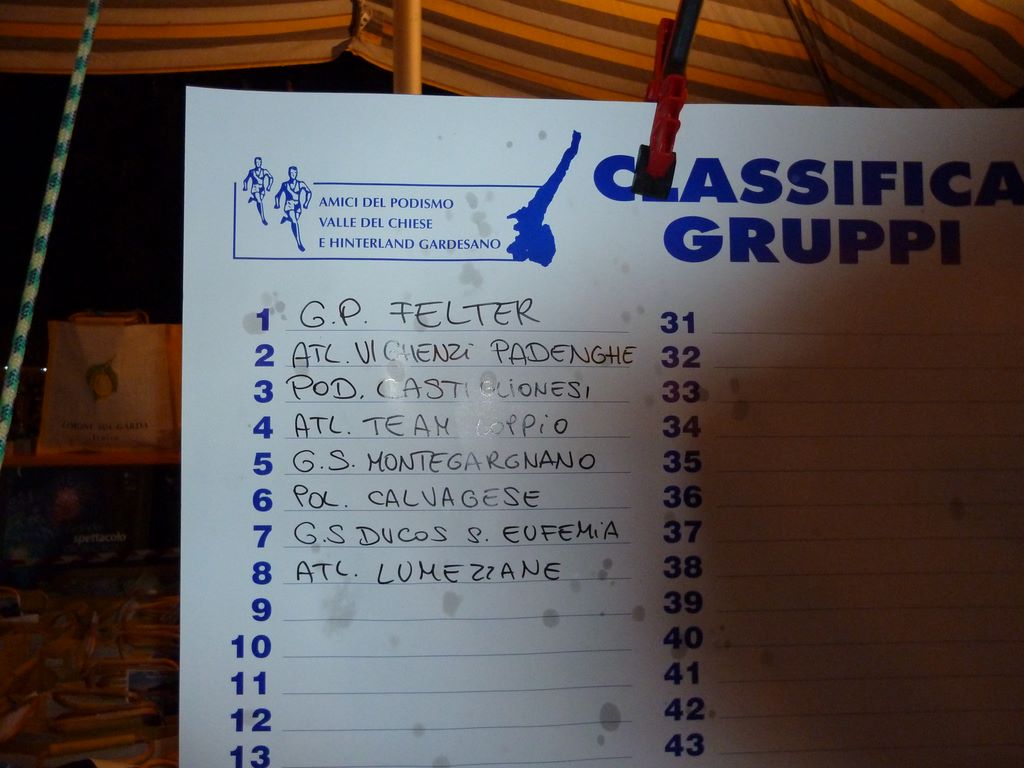 AMICI DEL PODISMO
VALLE DEL CHIESE
E HINTERLAND GARDESANO
CLASSIFICA
GRUPPI
1 G.P. FELTER
2 ATL. VIGHENZI PADENGHE
3 POD. CASTIGLIONESI
4 ATL. TEAM LOPPIO
5 G.S. MONTEGARGNANO
6 POL. CALVAGESE
7 G.S DUCOS S. EUFEMIA
8 ATL. LUMEZZANE
9
10
11
12
13
31
32
33
34
35
36
37
38
39
40
41
42
43
LIMONE SUL GARDA
spettacolo